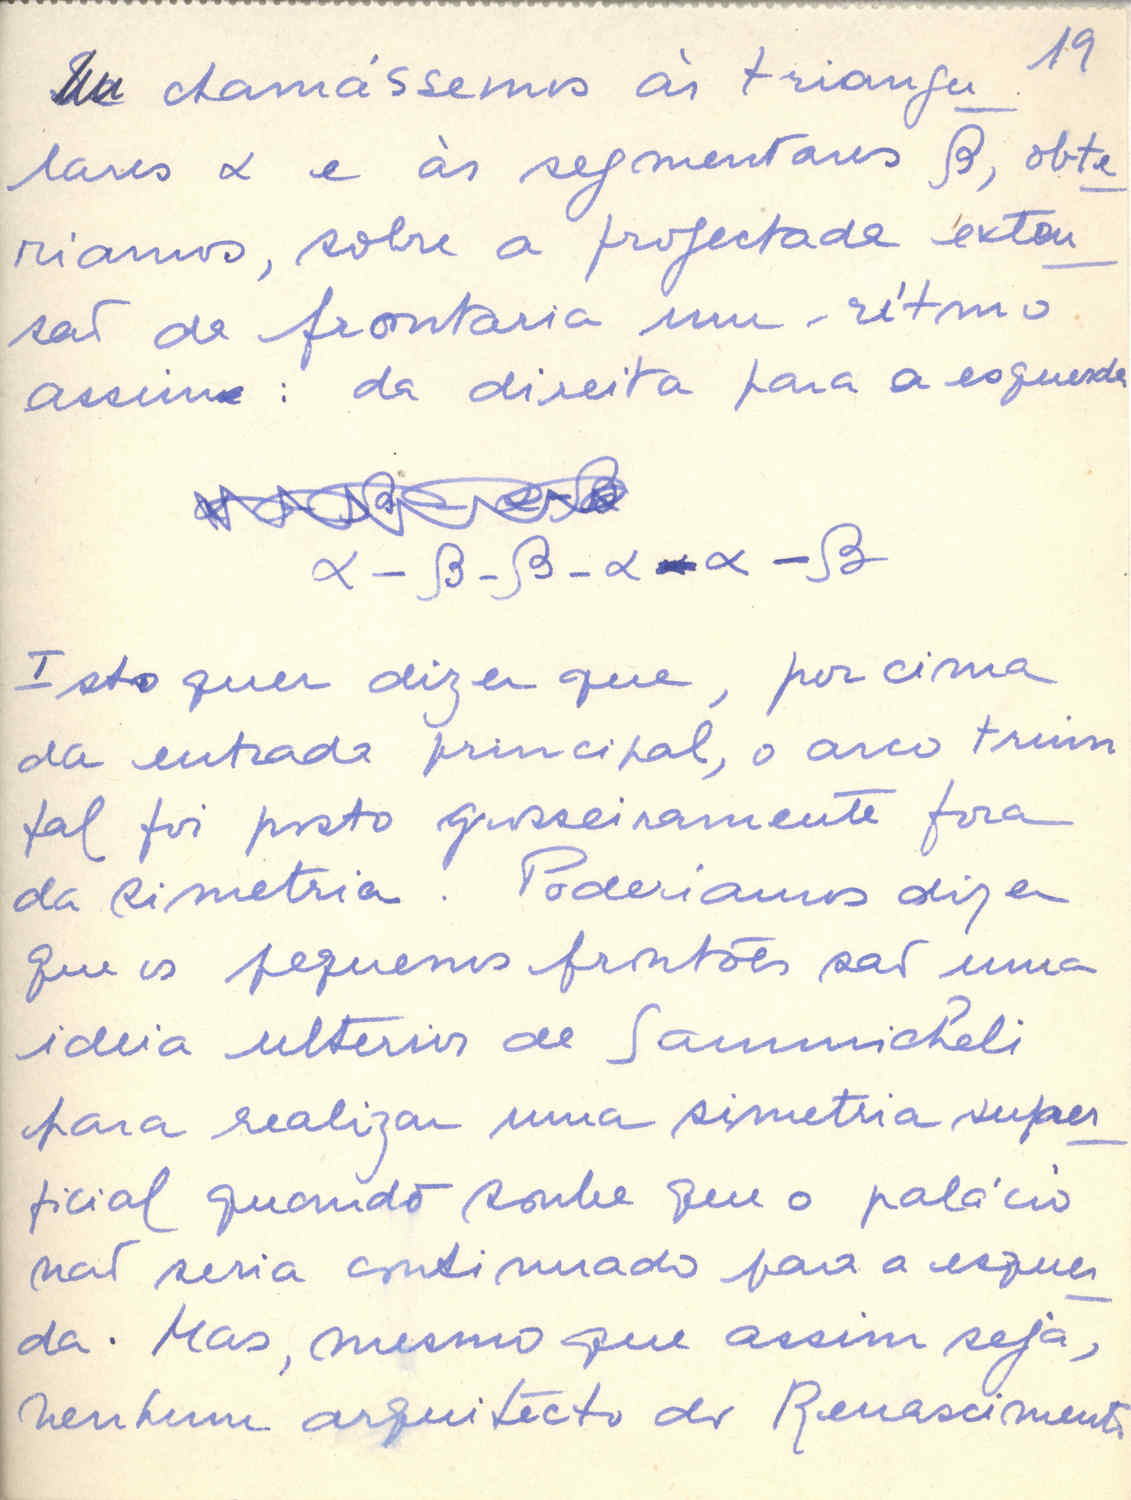 19
chamássemos às triangu
lares α e às segmentares β, obte
riamos, sobre a projectada exten
são da frontaria um rítmo
assim: da direita para a esquerda
α - β - β - α - α - β
Isto quer dizer que, por cima
da entrada principal, o arco triun
fal foi posto grosseiramente fora
da simetria. Poderiamos dizer
que os pequenos frontões são uma
ideia ulterior de Sammicheli
para realizar uma simetria super
ficial quando soube que o palácio
não seria continuado para a esquer
da. Mas, mesmo que assim seja,
nenhum arquitecto do Renascimento